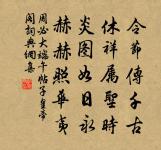 令節傳千古
休祥屬聖時
炎圖如日永
赫赫照華夷
周必大端午帖子皇帝
閣詞典網集